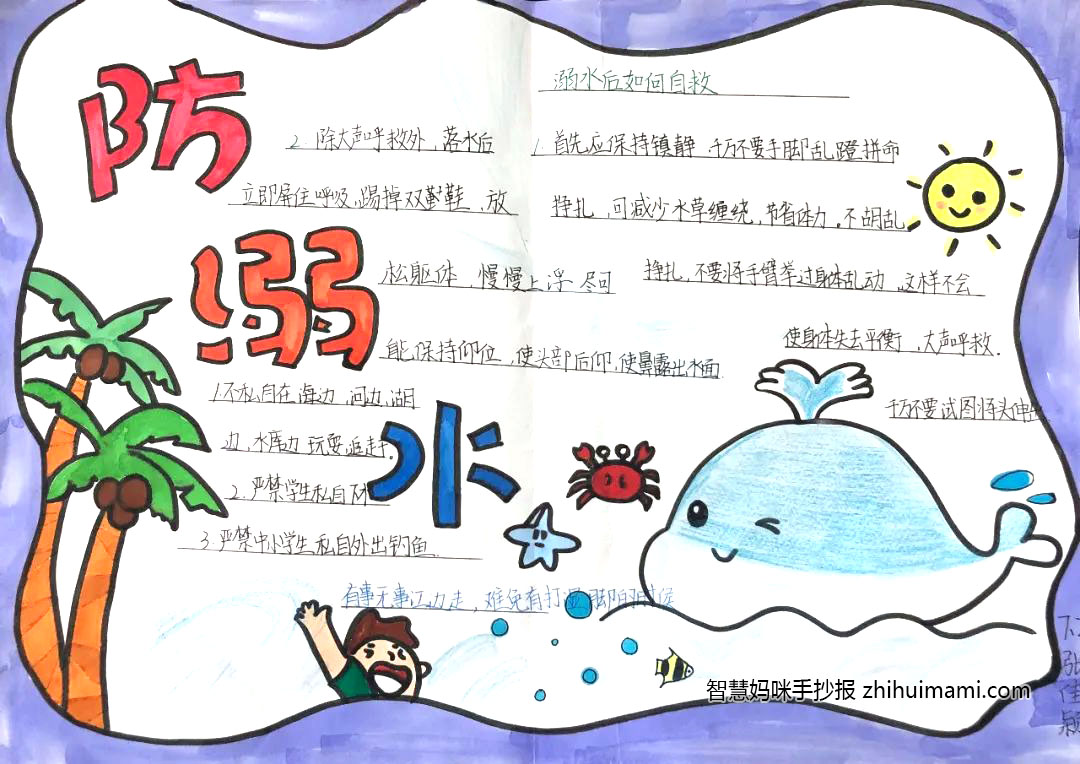 防
溺
水
溺水后如何自救
1.首先应保持镇静 千万不要手脚乱蹬拼命
挣扎,可减少水草缠绕,节省体力。不胡乱
挣扎,不要将手臂举过身体乱动,这样不会
使身体失去平衡,大声呼救.
千万不要试图将头伸出
2.除大声呼救外,落水后
立即屏住呼吸,踢掉双鞋,放
松躯体,慢慢上浮 尽可
能保持仰位,使头部后仰,使鼻露出水面.
1.不私自在海边,河边,湖
边,水库边 玩耍,追赶.
2.严禁学生私自下水
3.严禁中小学生私自外出钓鱼.
有事无事江边走,难免有打湿脚的时候
智慧妈咪手抄报 zhihuimami.com
张
佳
颖